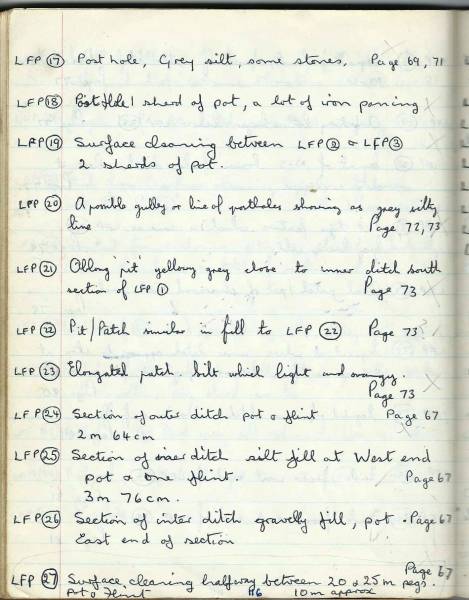 LFP 17 Post hole, Grey silt, some stones. Page 69, 71
LFP 18 1 sherd of pot, a lot of iron panning
LFP 19 Surface cleaning between LFP 2 & LFP 3
2 sherds of pot.
LFP 20 A possible gulley or line of postholes showing as grey silty
line Page 72, 73
LFP 21 Oblong 'pit' yellowy grey close to inner ditch south
section of LFP 1 Page 73
LFP 22 Pit/Patch similar in fill to LFP 22 Page 73
LFP 23 Elongated patch. Silt which light and orangy.
Page 73
LFP 24 Section of outer ditch pot & flint. Page 67
2m 64cm
LFP 25 Section of inner ditch silt fill at West end
pot & one flint. Page 67
3m 76cm.
LFP 26 Section of inter ditch gravelly fill, pot. Page 67
East end of section
Page 67
LFP 27 Surface cleaning halfway between 20 & 25 m pegs.
Pot & Flint 116 10m approx